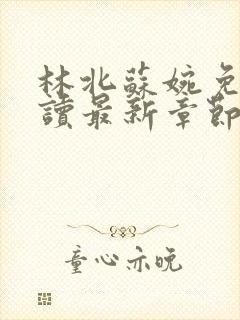 林北蘇婉免
讀最新章節
童心亦晚